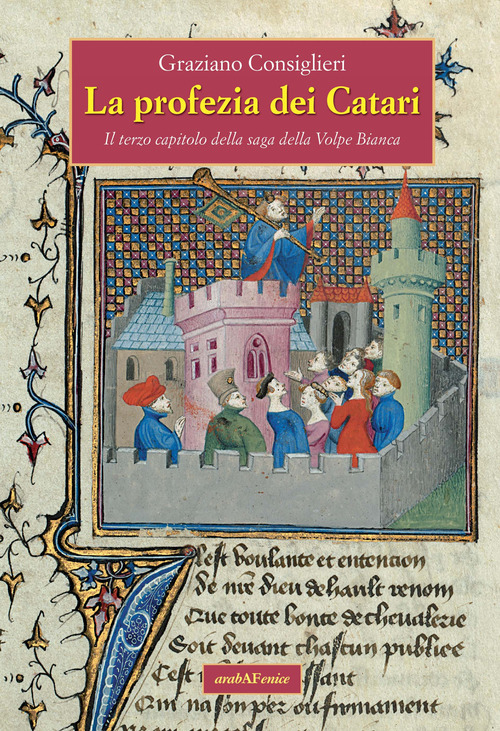 Graziano Consiglieri
La profezia dei Catari
Il terzo capitolo della saga della Volpe Bianca
lest voulante et entencion
De nre dieu de hault renom
Que toute bonte de chevalerie
Soit devant chascun publiee
Cest
Qui na son per ou firmament
arabAFenice